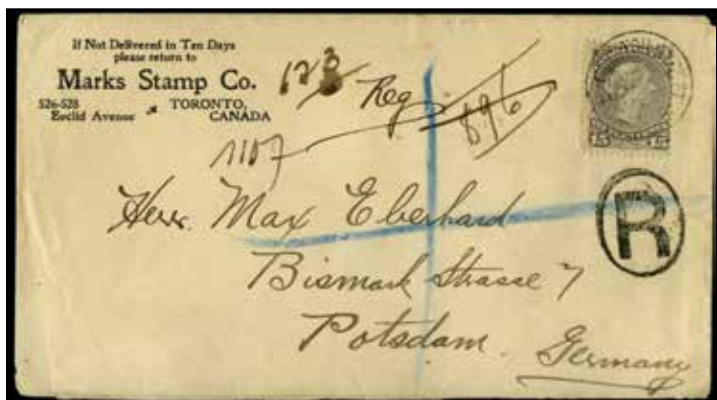 If Not Delivered in Ten Days
please return to
Marks Stamp Co.
526-528 TORONTO,
Euclid Avenue CANADA
123
Reg
896
1107
Herr Max Eberhard
R
Bismark Strasse 7
Potsdam.
Germany